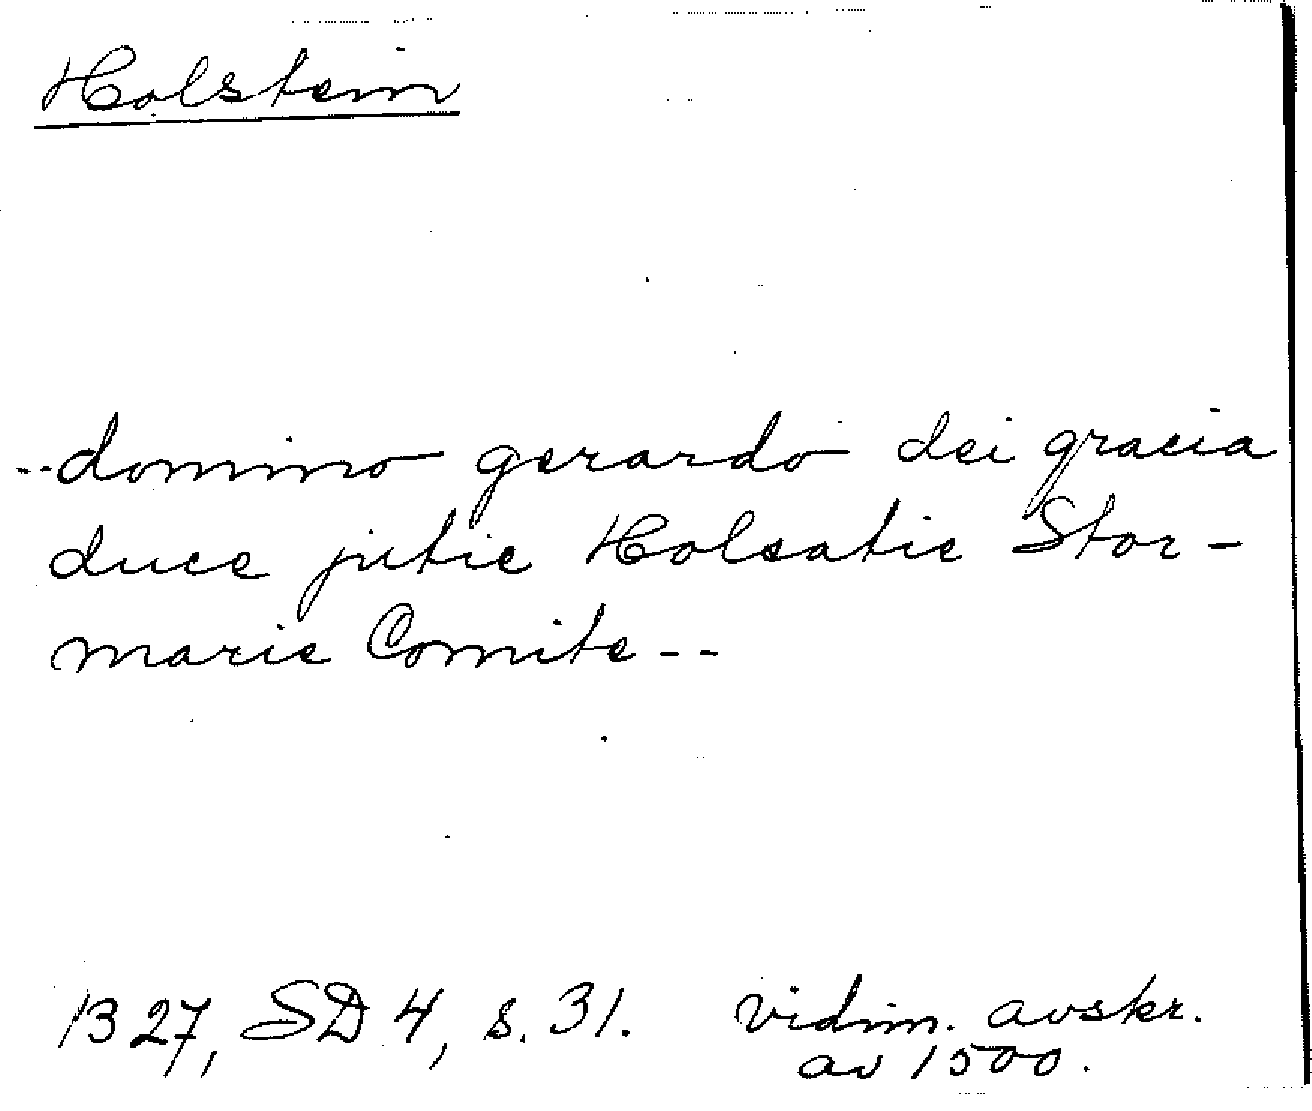 Holstein
--domino gerardo dei gracia
duce jutie Holsatie Stor-
marie Comite--
1327, SD 4, s. 31. vidim. avskr.
av 1500.